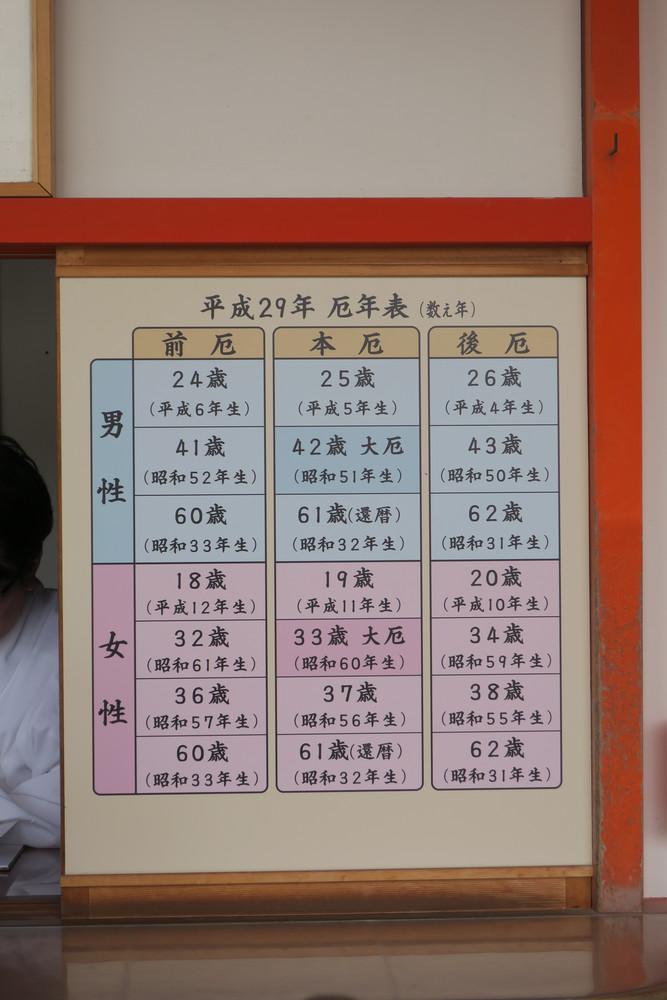 平成29年 厄年表（数え年）
前厄 本厄 後厄
男性
24歳 25歳 26歳
（平成6年生） （平成5年生） （平成4年生）
41歳 42歳 大厄 43歳
（昭和52年生） （昭和51年生） （昭和50年生）
60歳 61歳（還暦） 62歳
（昭和33年生） （昭和32年生） （昭和31年生）
女性
18歳 19歳 20歳
（平成12年生） （平成11年生） （平成10年生）
32歳 33歳 大厄 34歳
（昭和61年生） （昭和60年生） （昭和59年生）
36歳 37歳 38歳
（昭和57年生） （昭和56年生） （昭和55年生）
60歳 61歳（還暦） 62歳
（昭和33年生） （昭和32年生） （昭和31年生）